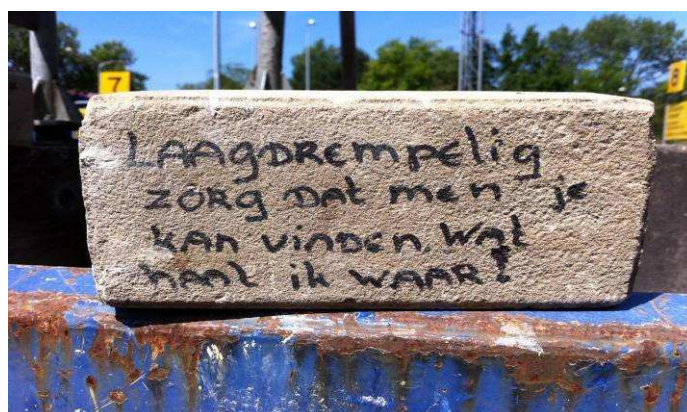 7
8
LAAGDREMPELIG
ZORG DAT men je
KAN VINDEN. Wat
HAAL ik WAAR!